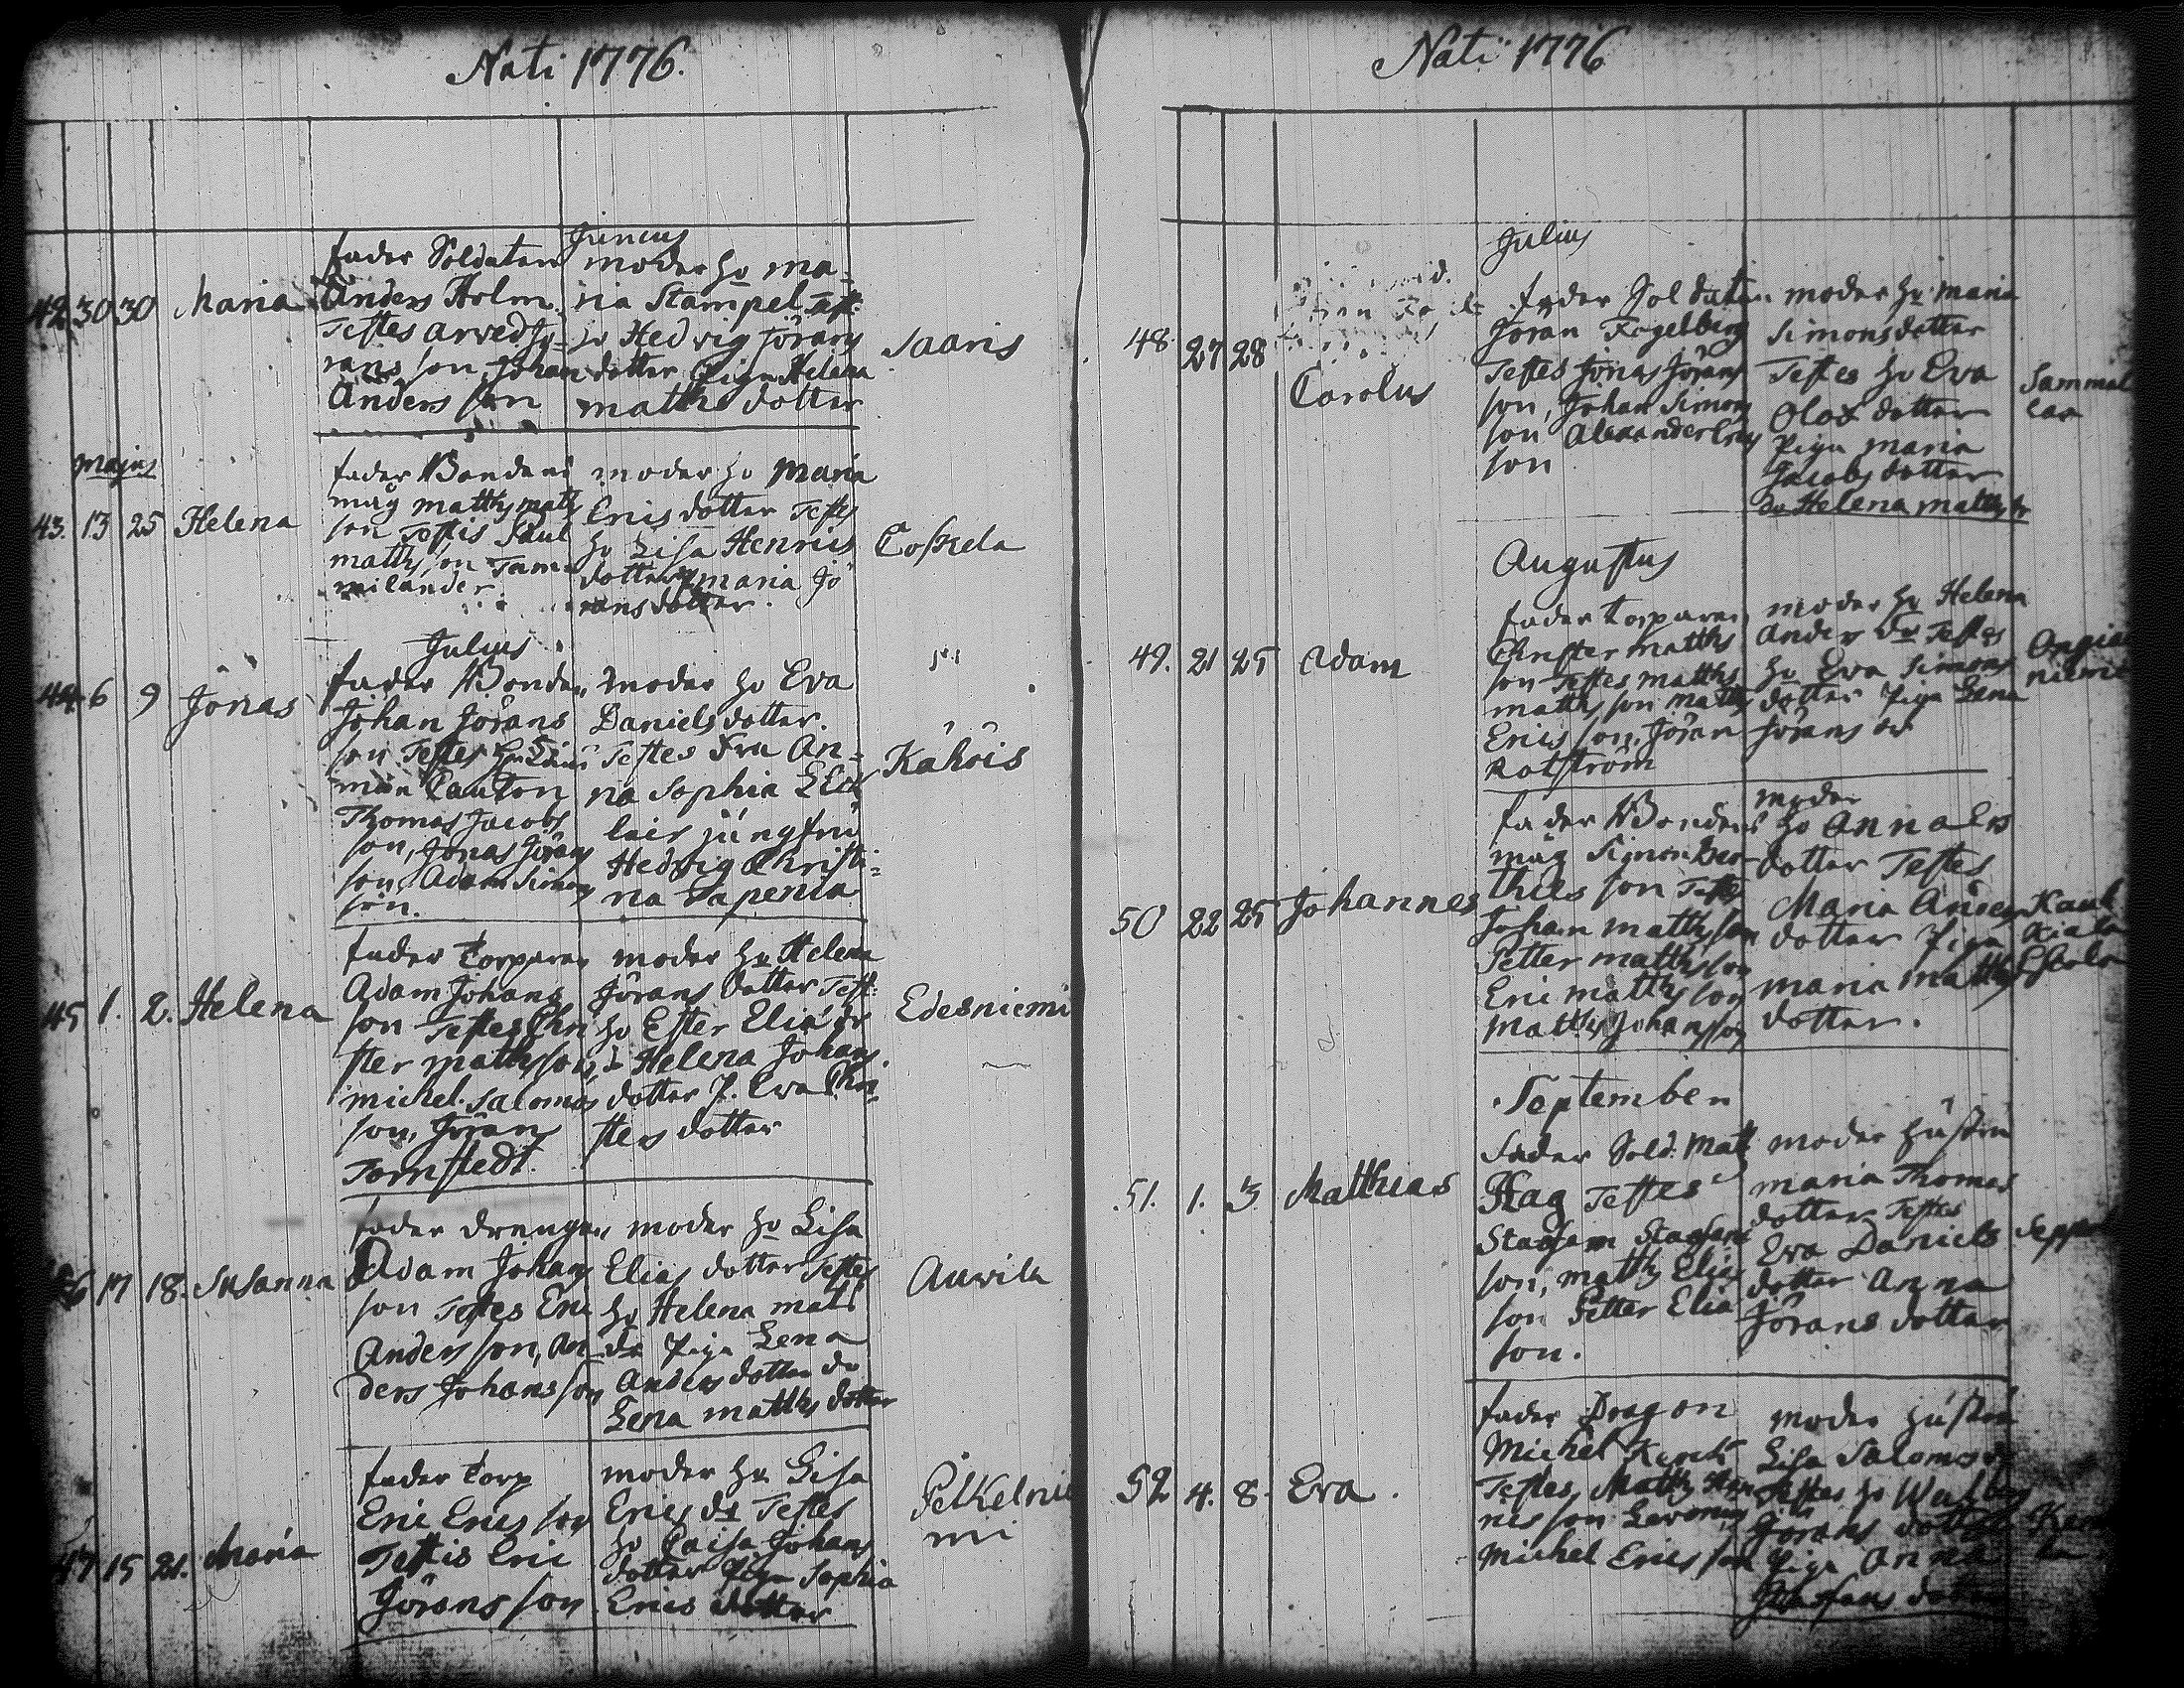 Nati 1776.
Junius
42 30 30 Maria
fader Soldaten
Anders Holm
Testes Arved Jö-
rans son, Johan
Anders son
moder hu Ma-
ria Stampel Test:
hu Hedvig Jörans
dotter Piga Helena
Matths dotter
Saaris
Majus
43. 13 25 Helena
fader Bondens
måg Matths Matts
son Testis Paul
Matths son Tam-
milander.
moder hu Maria
Erics dotter Testes
hu Lisa Henrics
dotter Maria Jö
ransdotter.
Coskela
Julius
44 6 9 Jonas
fader Bonden
Johan Jörans
son Testes
Thomas Jacobs
son, Jonas Jörans
son Adam Simons
son.
moder hu Eva
Daniels dotter.
Testes Fru An-
na Sophia
jungfru
Hedvig Christi-
na
Kähöis
45 1. 2. Helena
fader Torparen
Adam Johans
son Testes Chri
ster Matths son,
Michel Salomos
son, Jöran
Törnstedt.
moder hu Helena
Jörans dotter Test:
hu Ester Elia dr
Helena Johans
dotter P. Eva Chri-
sters dotter
Edesniemi
46 17 18. Susanna
fader drengen
Adam Johans
son Testes Eric
Anders son, An-
ders Johans son
moder hu Lisa
Elias dotter Testes
hu Helena Mats
dr Piga Lena
Anders dotter do
Lena Matths dotter
Auvila
47 15 21. Maria
fader Torp
Eric Erics son
Testis Eric
Jörans son
moder hu Lisa
Erics dr Testes
hu Caisa Johans
dotter Piga Sophia
Erics dotter
Pelkelnie
mi
Nati 1776
Julius
48. 27 28
Carolus
fader Soldaten
Jöran Fogelberg
Testes Jonas Jörans
son, Johan Simons
son Alexander Erics
son
moder hu Maria
Simonsdotter
Testes hu Eva
Olofs dotter
Piga Maria
Jacobs dotter
do Helena Matths dr
Sammal
Augustus
49. 21 25 Adam
fader Torparen
Christer Matths
son Testes Matths
Matths son Matths
Erics son, Jöran
Rotström
moder hu Helena
Anders dr Testes
hu Eva Simons
dotter Piga Lena
Jörans dr
50 22 25 Johannes
fader Bondens
måg Simon Bar-
thels son Testes
Johan Matths son
Petter Matths son
Eric Matths son
Matths Johans son
moder
hu Anna Ers
dotter Testes
Maria Anders
dotter Piga
Maria Matths
dotter.
September
51. 1. 3. Matthias
fader Sold. Matt
Flag Testes
Staffan Staffans
son, Matths Elias
son Petter Elia
son.
moder hustru
Maria Thomas
dotter Testes
Eva Daniels
dotter Anna
Jörans dotter
52 4. 8. Eva.
fader Dragon
Michel
Testes, Matths Hen
rics son
Michel Erics son
moder hustru
Lisa Salomos dr
Testes hu
Jörans dotter
Piga Anna
Staffans dotter